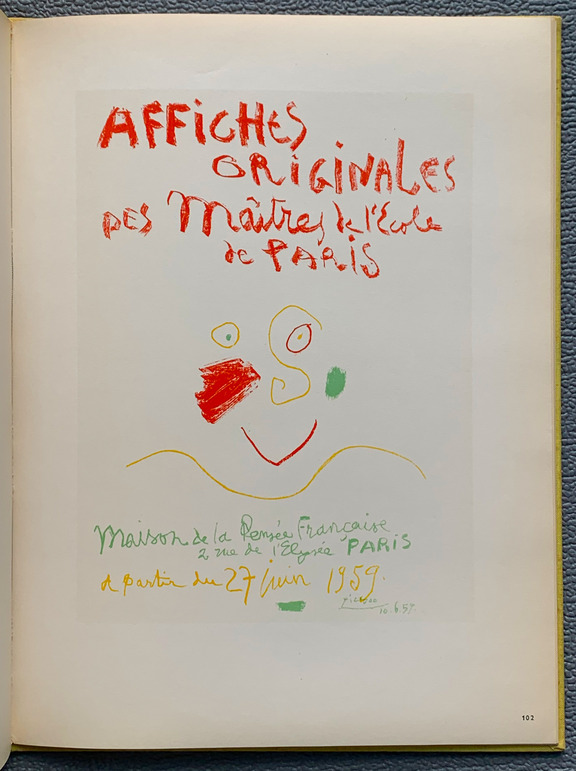 AFFiCHES
ORiGiNALES
DES Maîtres de l'Ecole
de PARiS
Maison de la Pensée Française
2 rue de l'Elysée PARIS
à partir du 27 juin 1959.
Picasso
10.6.59.
102